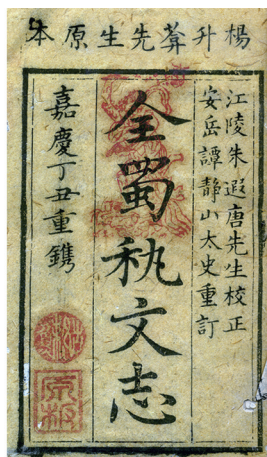 楊升菴先生原本
江陵朱遐唐先生校正
安岳譚静山太史重訂
全蜀秇文志
嘉慶丁丑重鐫